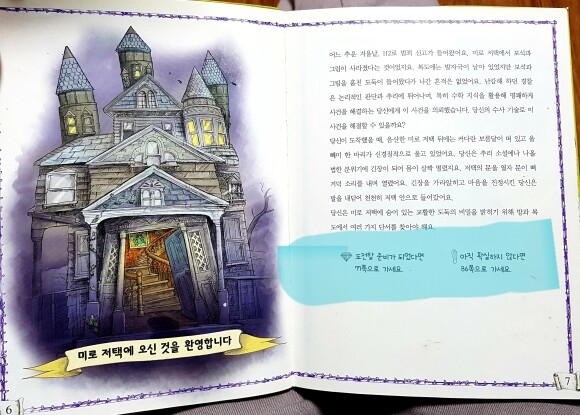 미로 저택에 오신 것을 환영합니다
6
어느 추운 겨울날, 112로 범죄 신고가 들어왔어요. 미로 저택에서 보석과
그림이 사라졌다는 것이었지요. 복도에는 발자국이 남아 있었지만 보석과
그림을 훔친 도둑이 들어왔다가 나간 흔적은 없었어요. 난감해 하던 경찰
은 논리적인 판단과 추리에 뛰어나며, 특히 수학 지식을 활용해 명쾌하게
사건을 해결하는 당신에게 이 사건을 의뢰했습니다. 당신의 수사 기술로 이
사건을 해결할 수 있을까요?
당신이 도착했을 때, 음산한 미로 저택 뒤에는 커다란 보름달이 떠 있고 올
빼미 한 마리가 신경질적으로 울고 있었어요. 당신은 추리 소설에나 나올
법한 분위기에 긴장이 되어 몸이 살짝 떨렸지요. 저택의 문을 열자 문이 삐
거덕 소리를 내며 열렸어요. 긴장을 가라앉히고 마음을 진정시킨 당신은
발을 내딛어 천천히 저택 안으로 들어갔어요.
당신은 미로 저택에 숨어 있는 교활한 도둑의 비밀을 밝히기 위해 방과 복
도에서 여러 가지 단서를 찾아야 해요.
도전할 준비가 되었다면
11쪽으로 가세요.
아직 확실하지 않다면
36쪽으로 가세요.
7